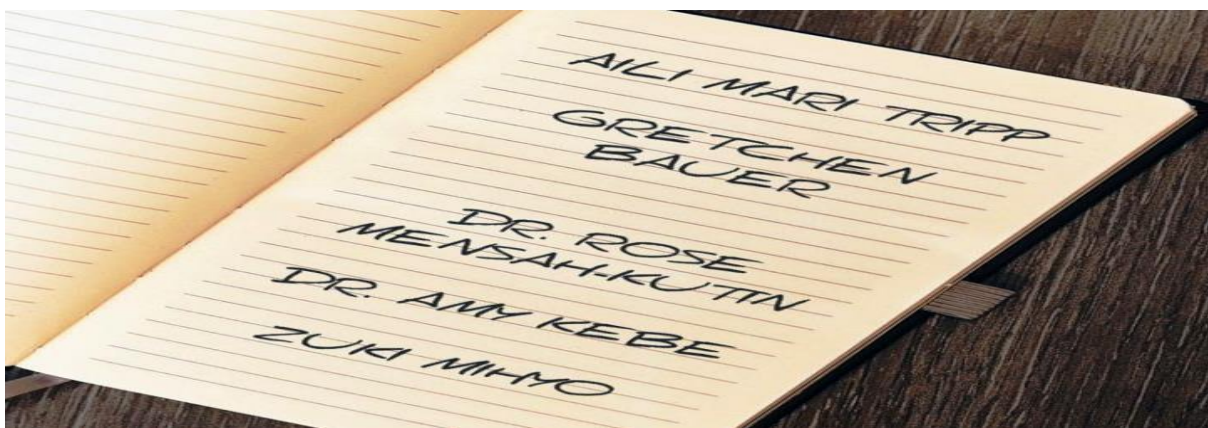 AILI MARI TRIPP
GRETCHEN
BAUER
DR. ROSE
MENSAH-KUTIN
DR. AMY KEBE
ZUKI MIHYO